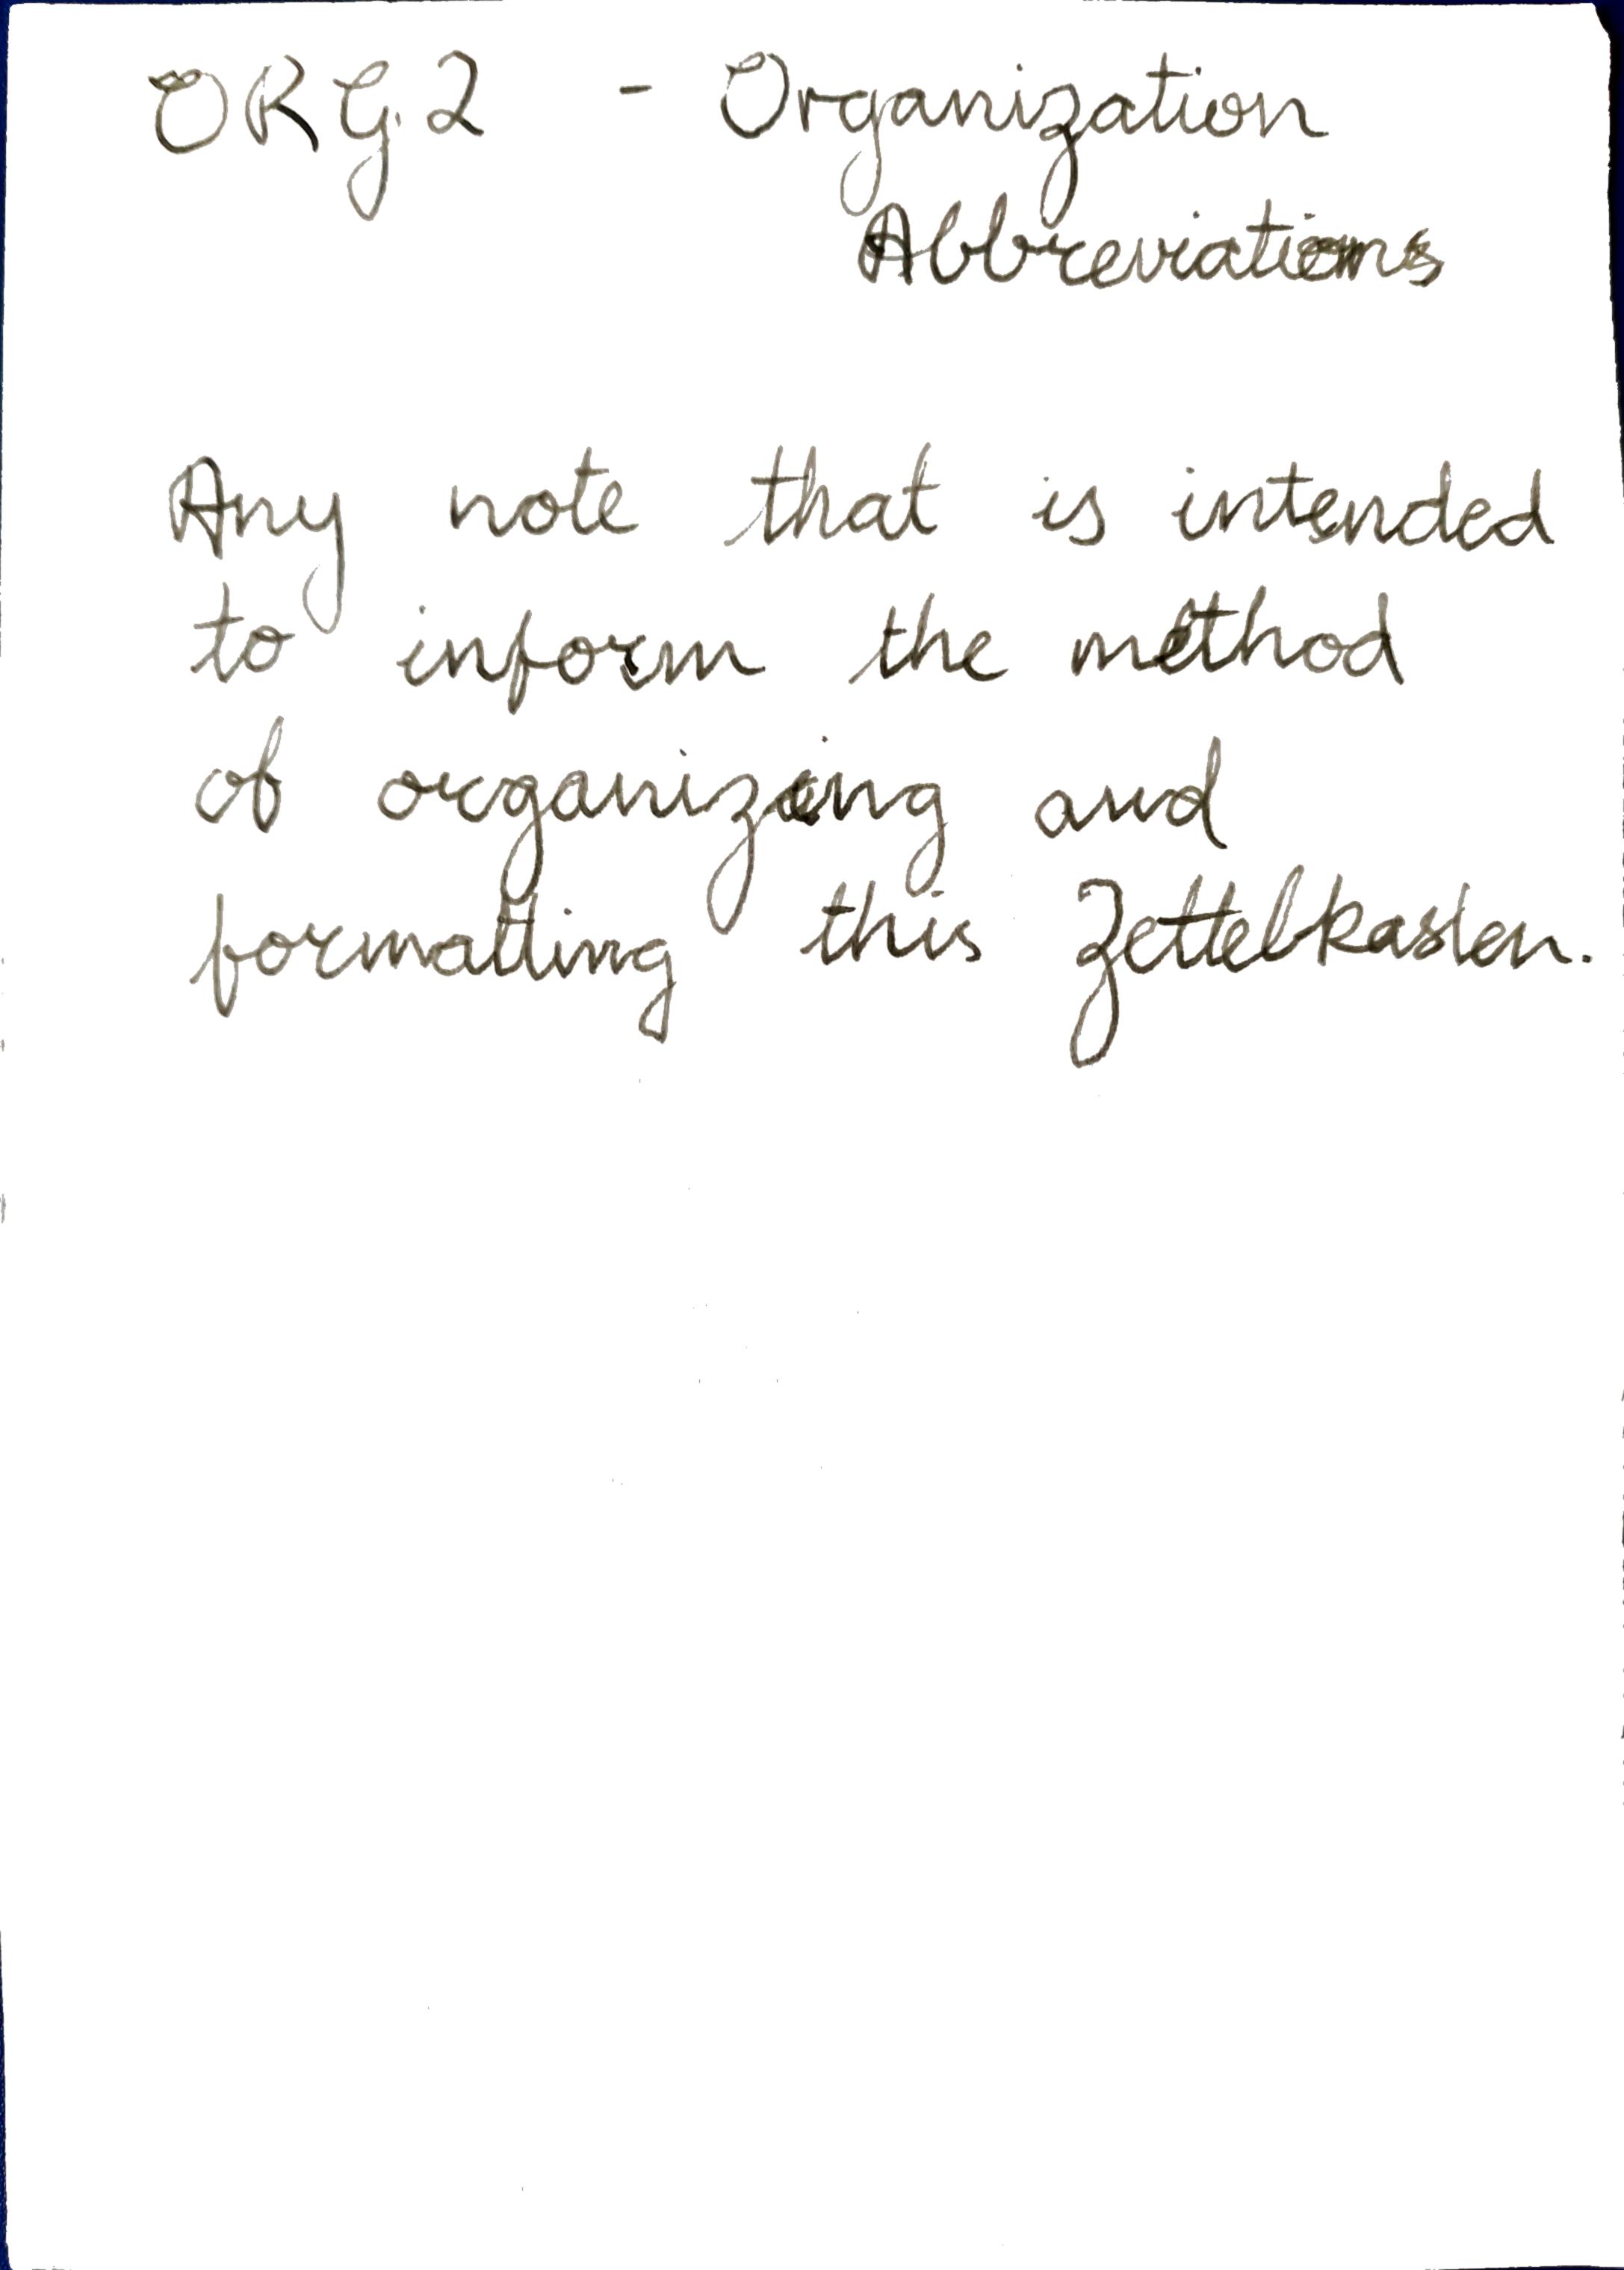 ORG.2 - Organization
Abbreviations
Any note that is intended
to inform the method
of organizing and
formatting this Zettelkasten.